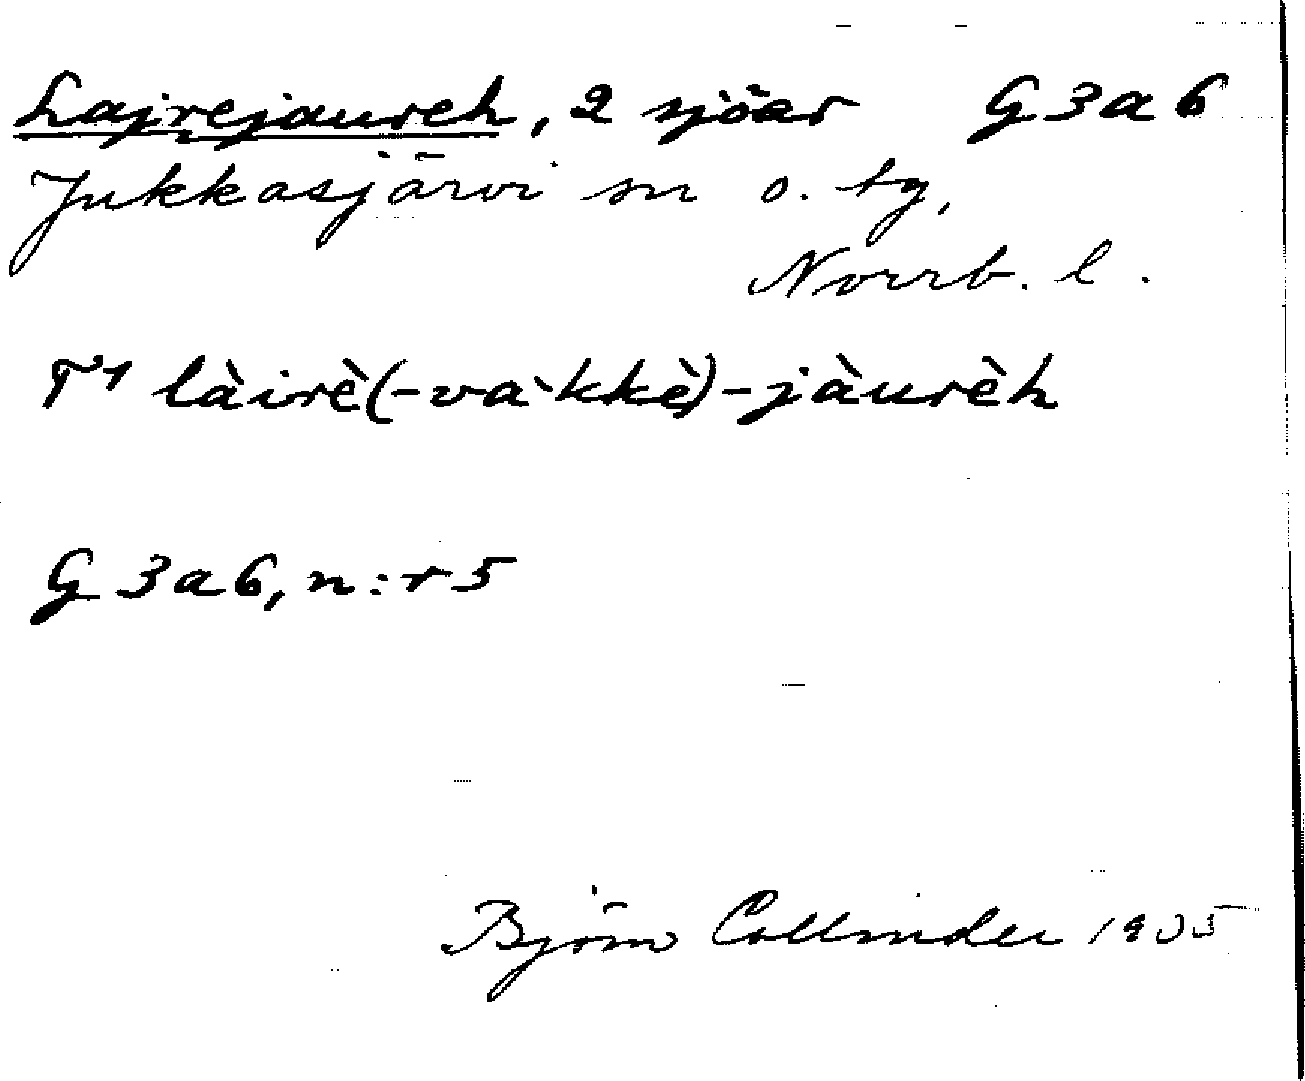 Lajrejaureh, 2 sjöar G3a6
Jukkasjärvi sn o. tg,
Norrb. l.
T1 làirè(-và`kkè)-jàurèh
G3a6, n:r 5
Björn Collinder 1935